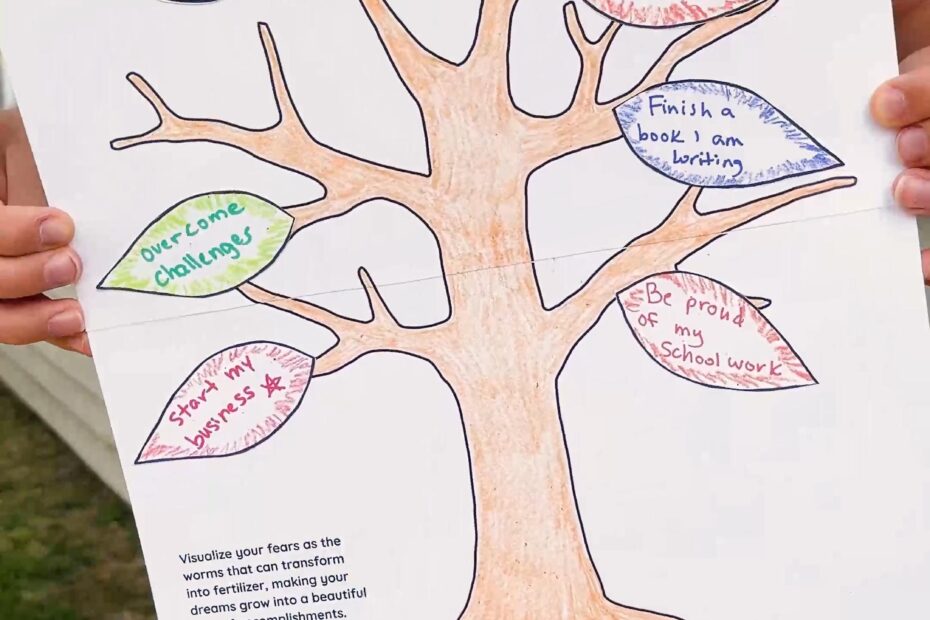 Finish a
book I am
writing
overcome
challenges
Be proud
of my
School work
Start my
business
Visualize your fears as the
worms that can transform
into fertilizer, making your
dreams grow into a beautiful